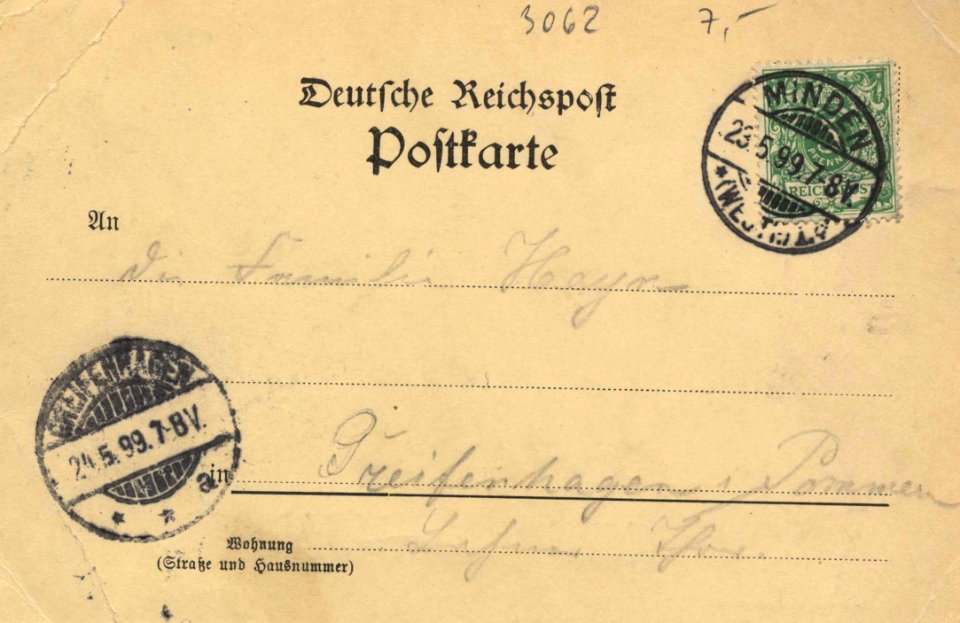 3062 7,-
Deutsche Reichspost
Postkarte
MINDEN
23.5.99.7-8V.
(WESTF.)
PFENNIG
REICHSPOST
An
Die Familie Hayn
GREIFENHAGEN
24.5.99.7-8V.
a
in Greifenhagen i Pommern
Wohnung
(Straße und Hausnummer)